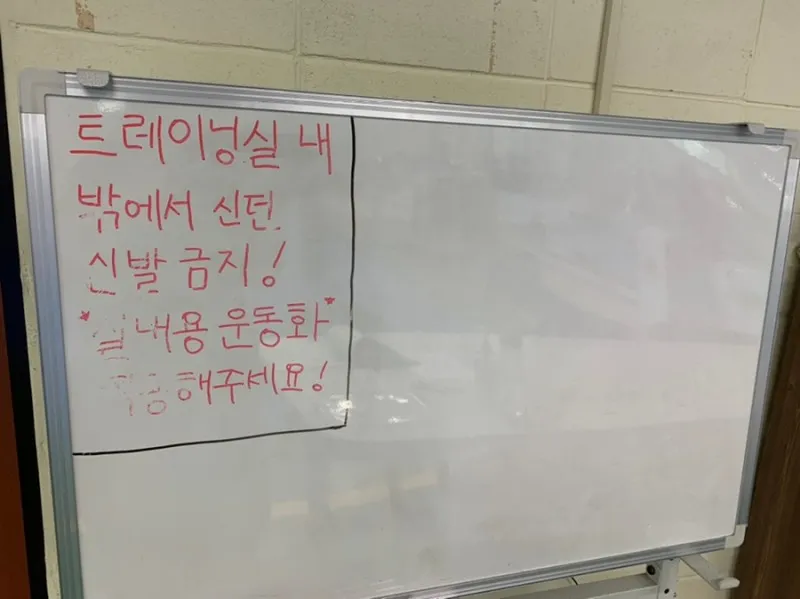 트레이닝실 내
밖에서 신던
신발 금지!
*실내용 운동화*
착용해주세요!